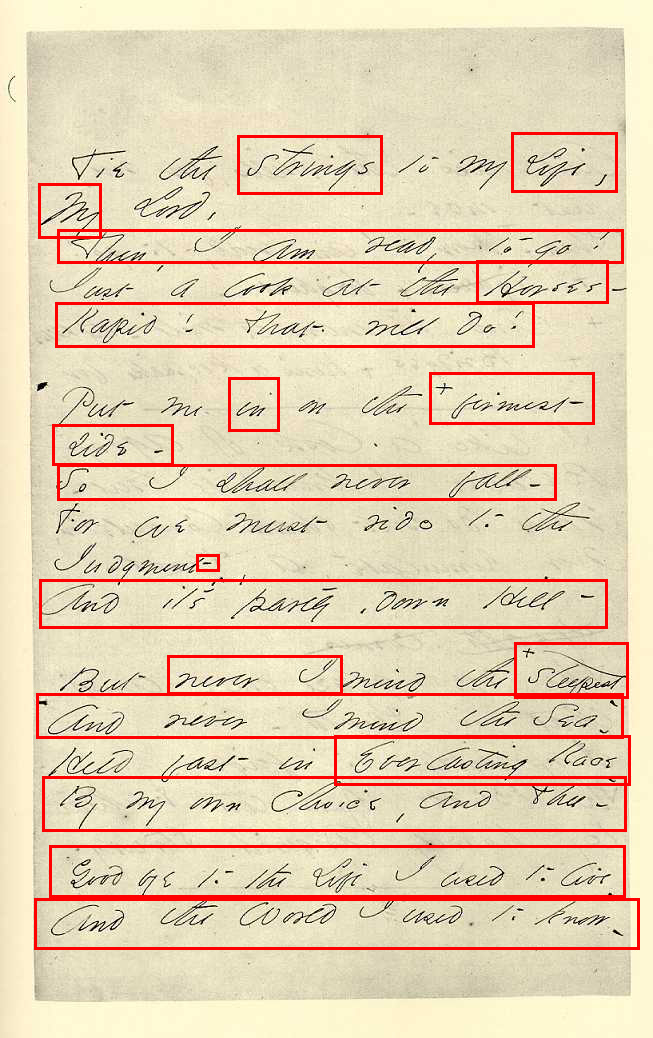 Tie the Strings to my Life,
My Lord,
Then, I am ready to go!
Just a look at the Horses -
Rapid! That will do!
Put me in on the + firmest
side -
So I shall never fall -
For we must ride to the
Judgment -
And it's partly, down Hill -
But never I mind the + steepest
And never I mind the Sea -
Held fast in Everlasting Race -
By my own Choice, and Thee -
Good bye to the Life I used to live -
And the World I used to know -